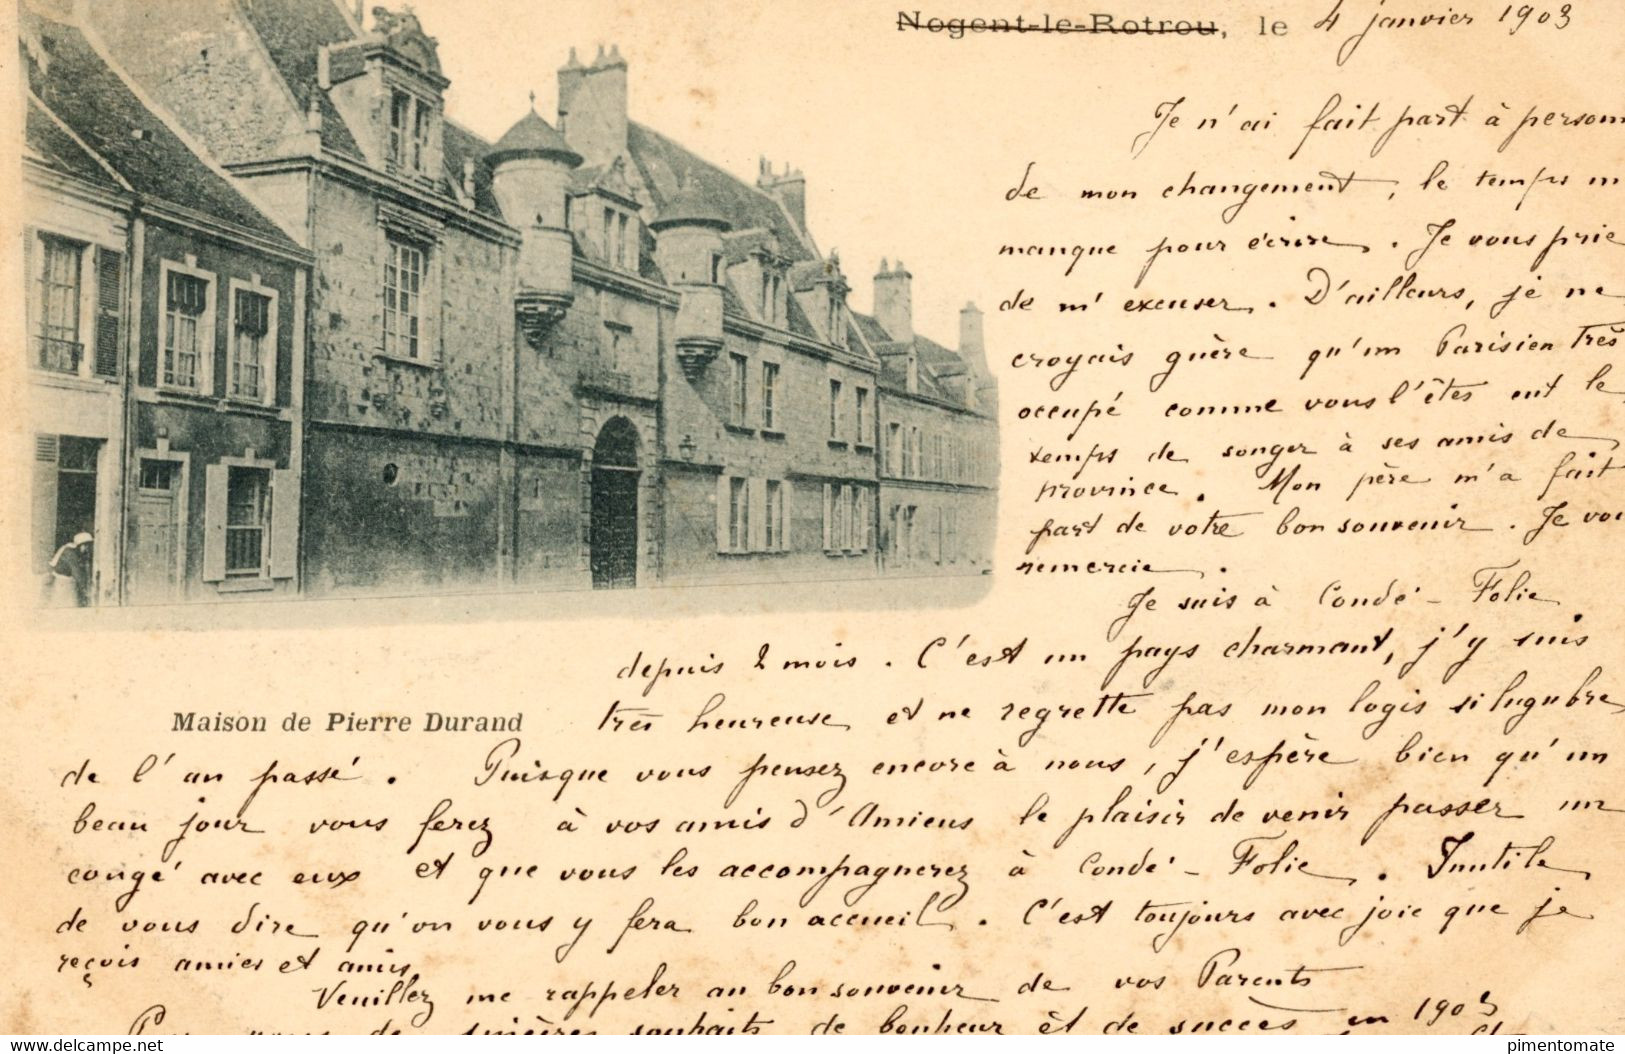 Nogent-le-Rotrou, le 4 janvier 1903
Je n'ai fait part à personn
de mon changement, le temps m
manque pour écrire. Je vous prie
de m'excuser. D'ailleurs, je ne
croyais guère qu'un Parisien très
occupé comme vous l'êtes eut le
temps de songer à ses amis de
province. Mon père m'a fait
part de votre bon souvenir. Je vou
remercie.
Je suis à Condé-Folie
depuis 2 mois. C'est un pays charmant, j'y suis
Maison de Pierre Durand
très heureuse et ne regrette pas mon logis si lugubre
de l'an passé. Puisque vous pensez encore à nous, j'espère bien qu'un
beau jour vous ferez à vos amis d'Amiens le plaisir de venir passer un
congé avec eux et que vous les accompagnerez à Condé-Folie. Inutile
de vous dire qu'on vous y fera bon accueil. C'est toujours avec joie que je
reçois amies et amis.
Veuillez me rappeler au bon souvenir de vos Parents
de sincères souhaits de bonheur et de succès en 1903
https://www.delcampe.net
pimentomate